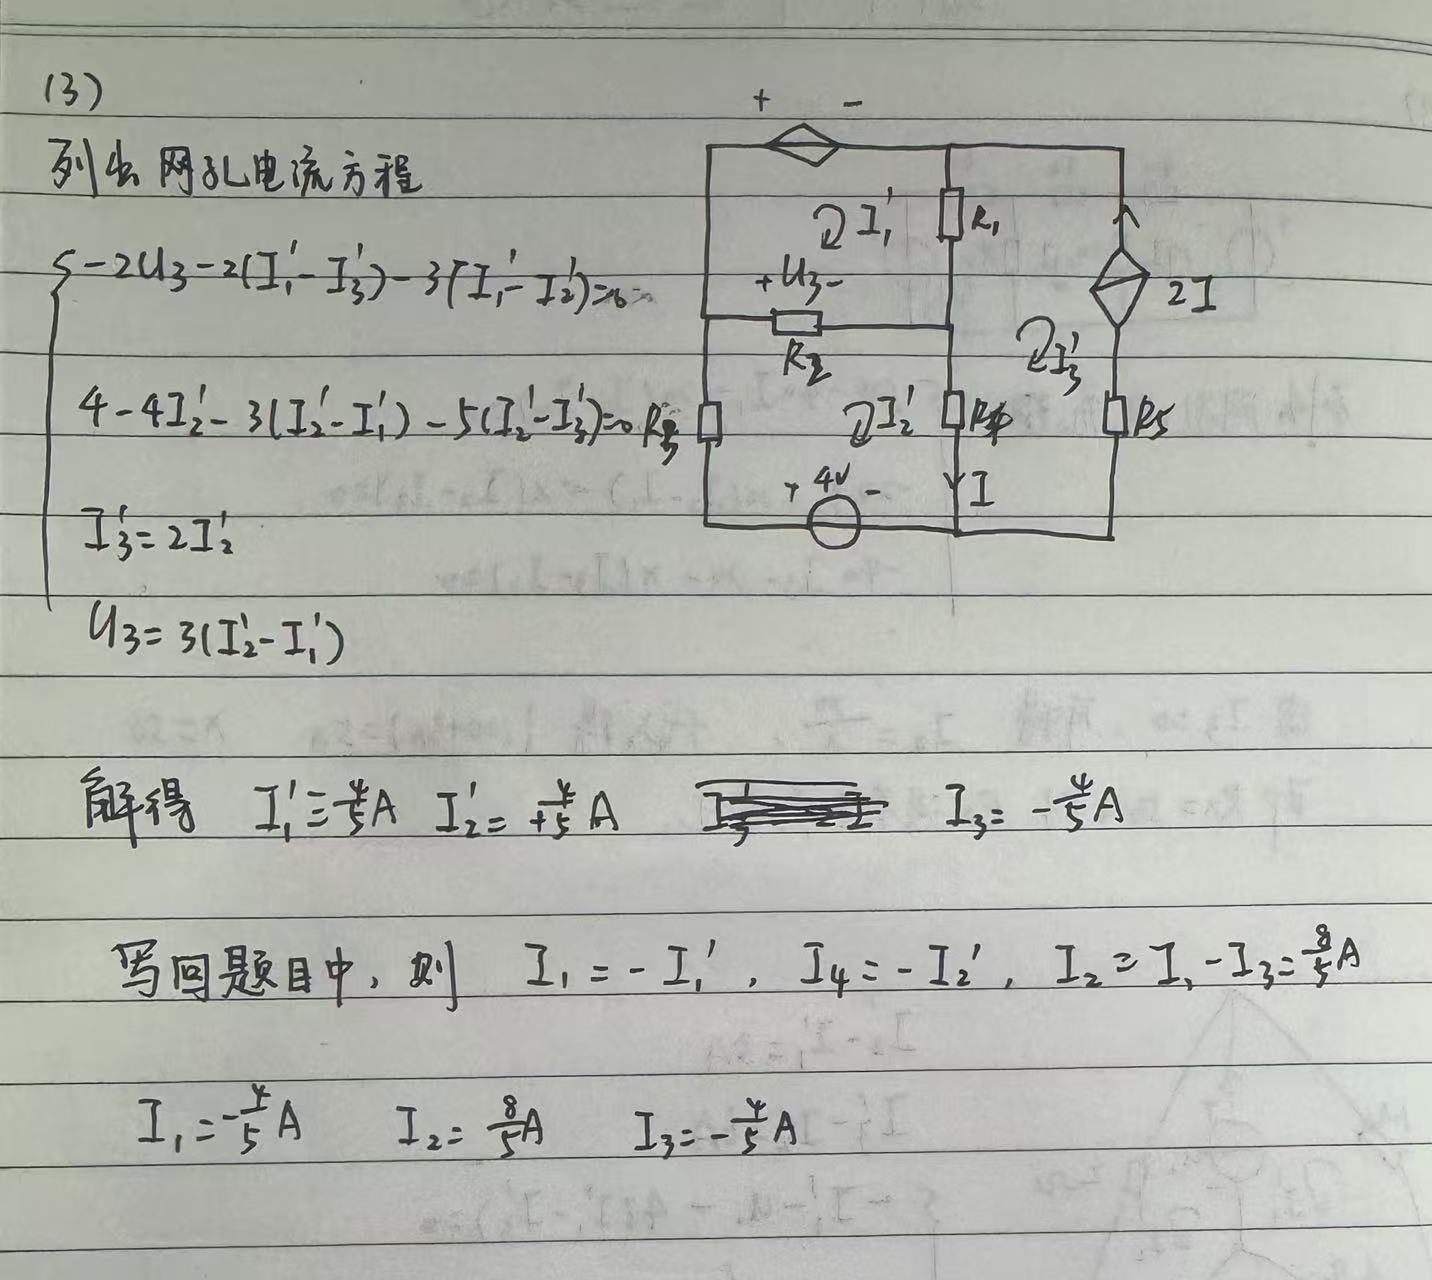 (3)
列出网孔电流方程
-2U₃-2(I₁'-I₃')-3(I₁'-I₂')=0
4-4I₂'-3(I₂'-I₁')-5(I₂'-I₃')=0
I₃'=2I₂'
U₃=3(I₂'-I₁')
+ -
I₁'
R₁
+U₃-
R₂
2I
I₃'
R₃
I₂'
R₄
R₅
+ 4V -
I
解得 I₁'=4/5A I₂'=+4/5A I₃=-4/5A
写回题目中,则 I₁=-I₁', I₄=-I₂', I₂=I₁-I₃=8/5A
I₁=-4/5A I₂=8/5A I₃=-4/5A